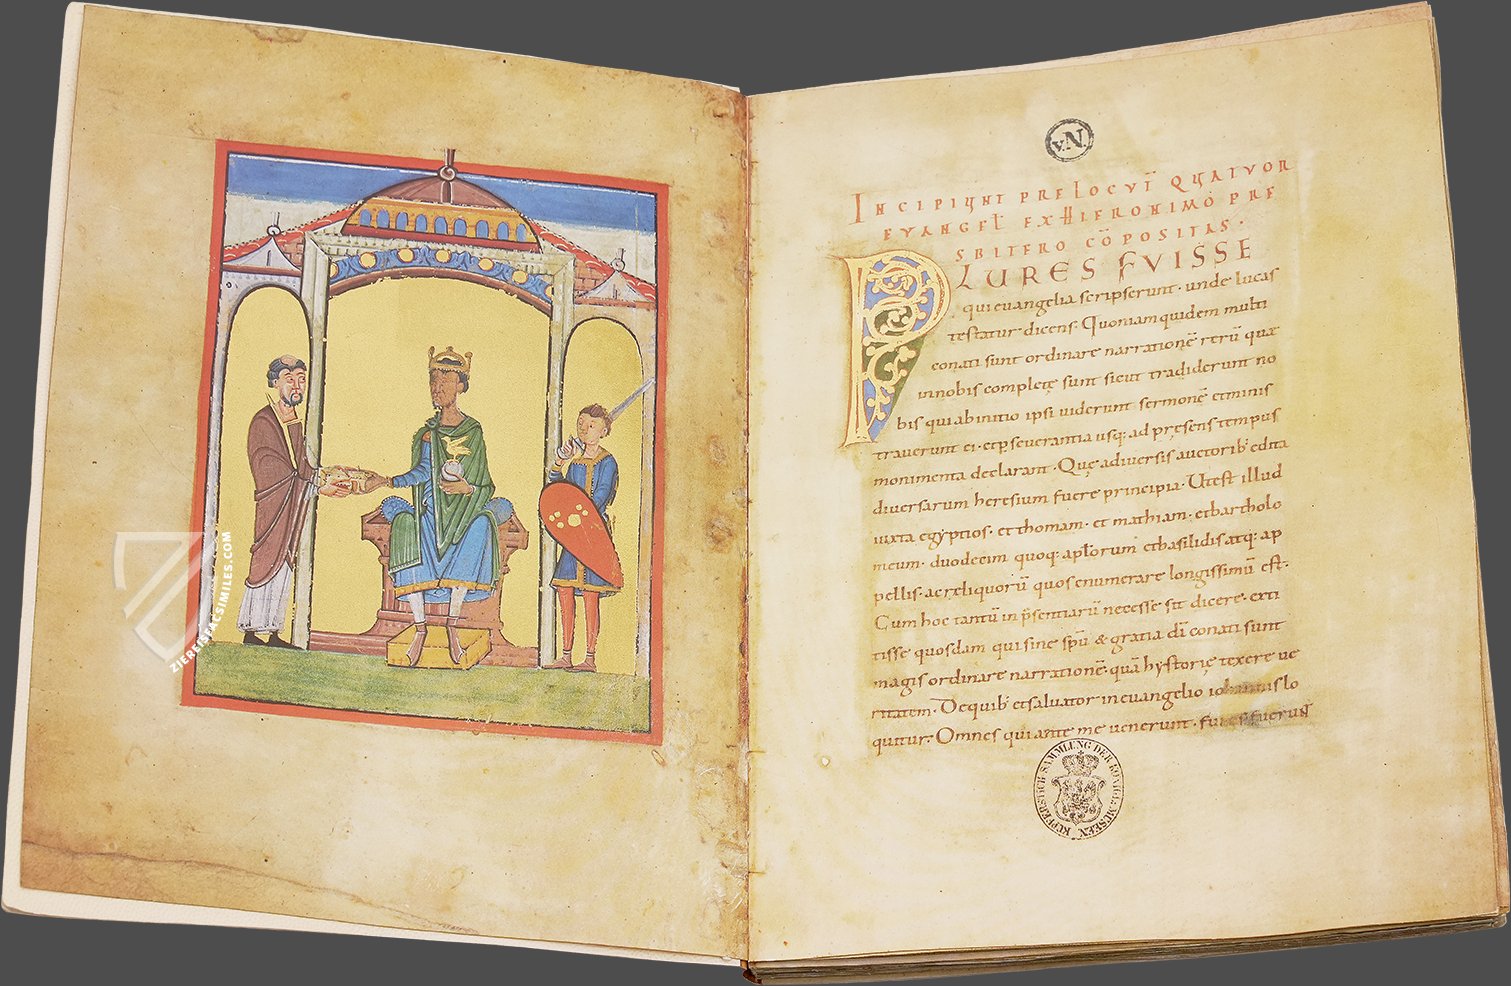 ZIEREISFACSIMILES.COM
v.N.
INCIPIUNT PRELOCUT̄ QUATUOR
EVANGEL̄ EX HIERONIMO PRE
SBITERO CŌPOSITAS.
PLURES FVISSE
qui evangelia scripserunt. unde lucas
testatur dicens. Quoniam quidem multi
conati sunt ordinare narrationē rerū quae
innobis completę sunt sicut tradiderunt no
bis qui abinitio ipsi viderunt sermonē etminis
traverunt ei. et perseverantia usq; ad pręsens tempus
monimenta declarant. Quę adiversis auctorib; edita
diversarum heresium fuere principia. Utest illud
iuxta egyptios. et thomam. et mathiam. etbartholo
meum. duodecim quoq; apl̄orum etbasilidis atq; ap
pellis. ac reliquorū quos enumerare longissimū est.
Cum hoc tantū in p̄sentiarū necesse sit dicere. exti
tisse quosdam qui sine sp̄u & gratia dī conati sunt
magis ordinare narrationē. quā hystorię texere ve
ritatem. Dequib; etsalvator in evangelio iohannis lo
quitur. Omnes qui ante me venerunt. fures fuerunt
KUPFERSTICH SAMMLUNG DER KÖNIGL. MUSEEN.